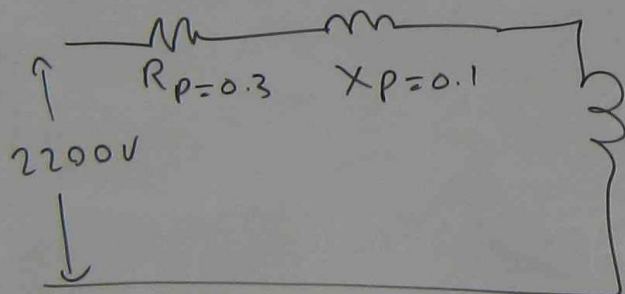 Rp=0.3 Xp=0.1
2200V